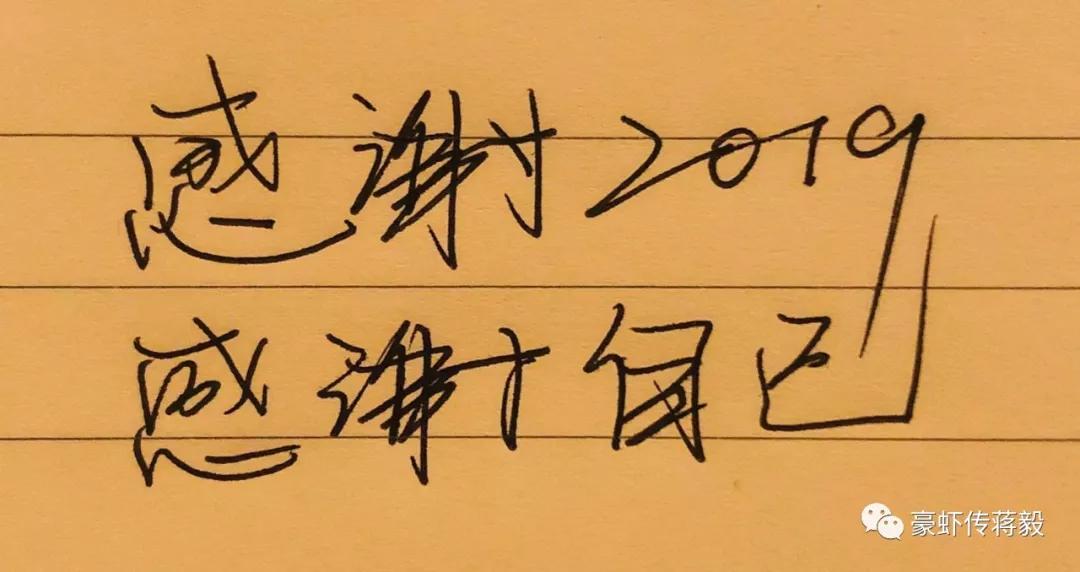 感谢2019
感谢自己
豪虾传蒋毅